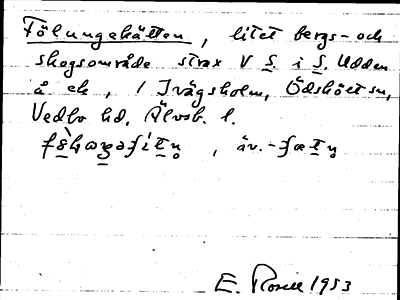 Fölungehätten, litet bergs- och
skogsområde strax V S. i S. Udden
å ek, 1 Ivägsholm, Ödskölts sn,
Vedbo hd, Älvsb. l.
, äv.
E. Rosell 1953